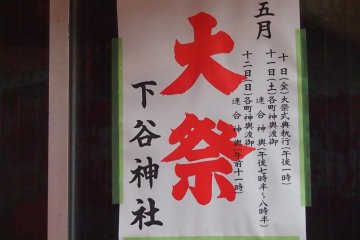 五月
十日(金)大祭式典執行(午後一時)
十一日(土)各町神輿渡御
連合神輿(午後七時半~八時半)
十二日(日)各町神輿渡御
連合神輿(午前十一時)
大祭
下谷神社